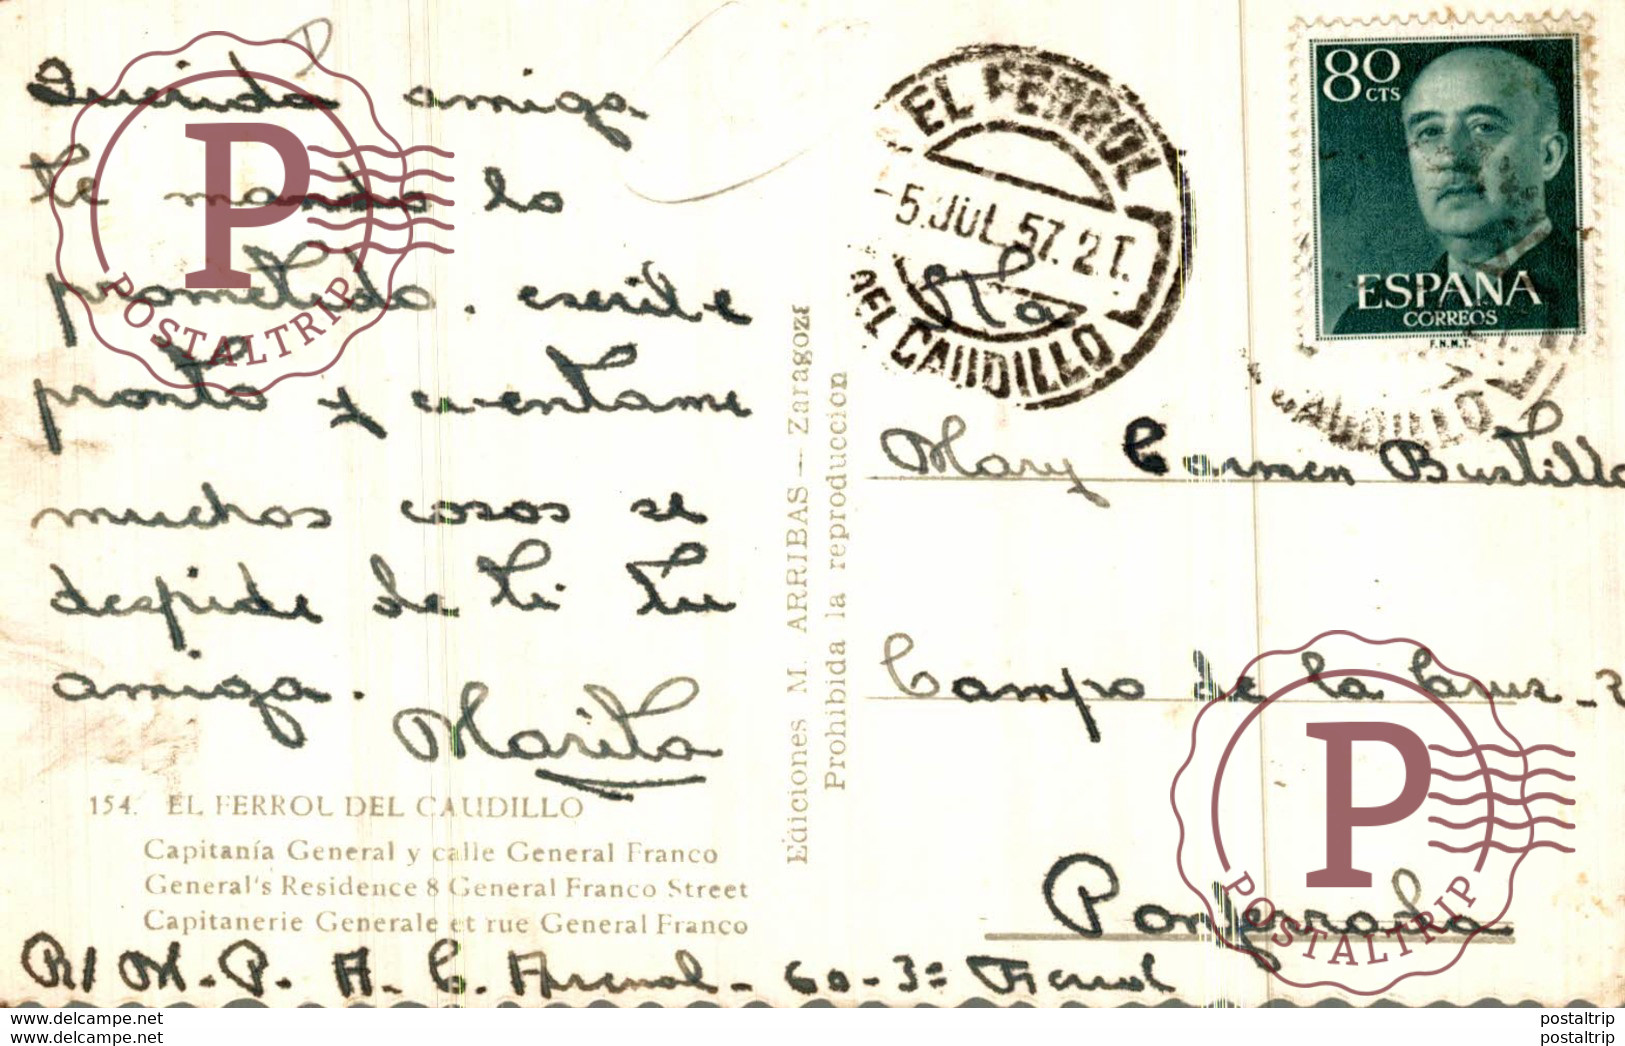 Querida amiga
te mando lo
prometido. escribe
pronto y cuentame
muchas cosas se
despide de ti tu
amiga.
Marita
154. EL FERROL DEL CAUDILLO
Capitanía General y calle General Franco
General's Residence & General Franco Street
Capitanerie Generale et rue General Franco
R/ M. P. A. C. Arenal - 60-3º Ferrol
Ediciones M. ARRIBAS - Zaragoza
Prohibida la reproduccion
EL FERROL
-5.JUL.57.2T.
DEL CAUDILLO
80
CTS
ESPAÑA
CORREOS
F.N.M.T.
CAUDILLO
Sta
Mary Carmen Bustillo
Campo de la Cruz -
Ponferrada
P
POSTALTRIP
P
POSTALTRIP
www.delcampe.net
www.delcampe.net
postaltrip
postaltrip